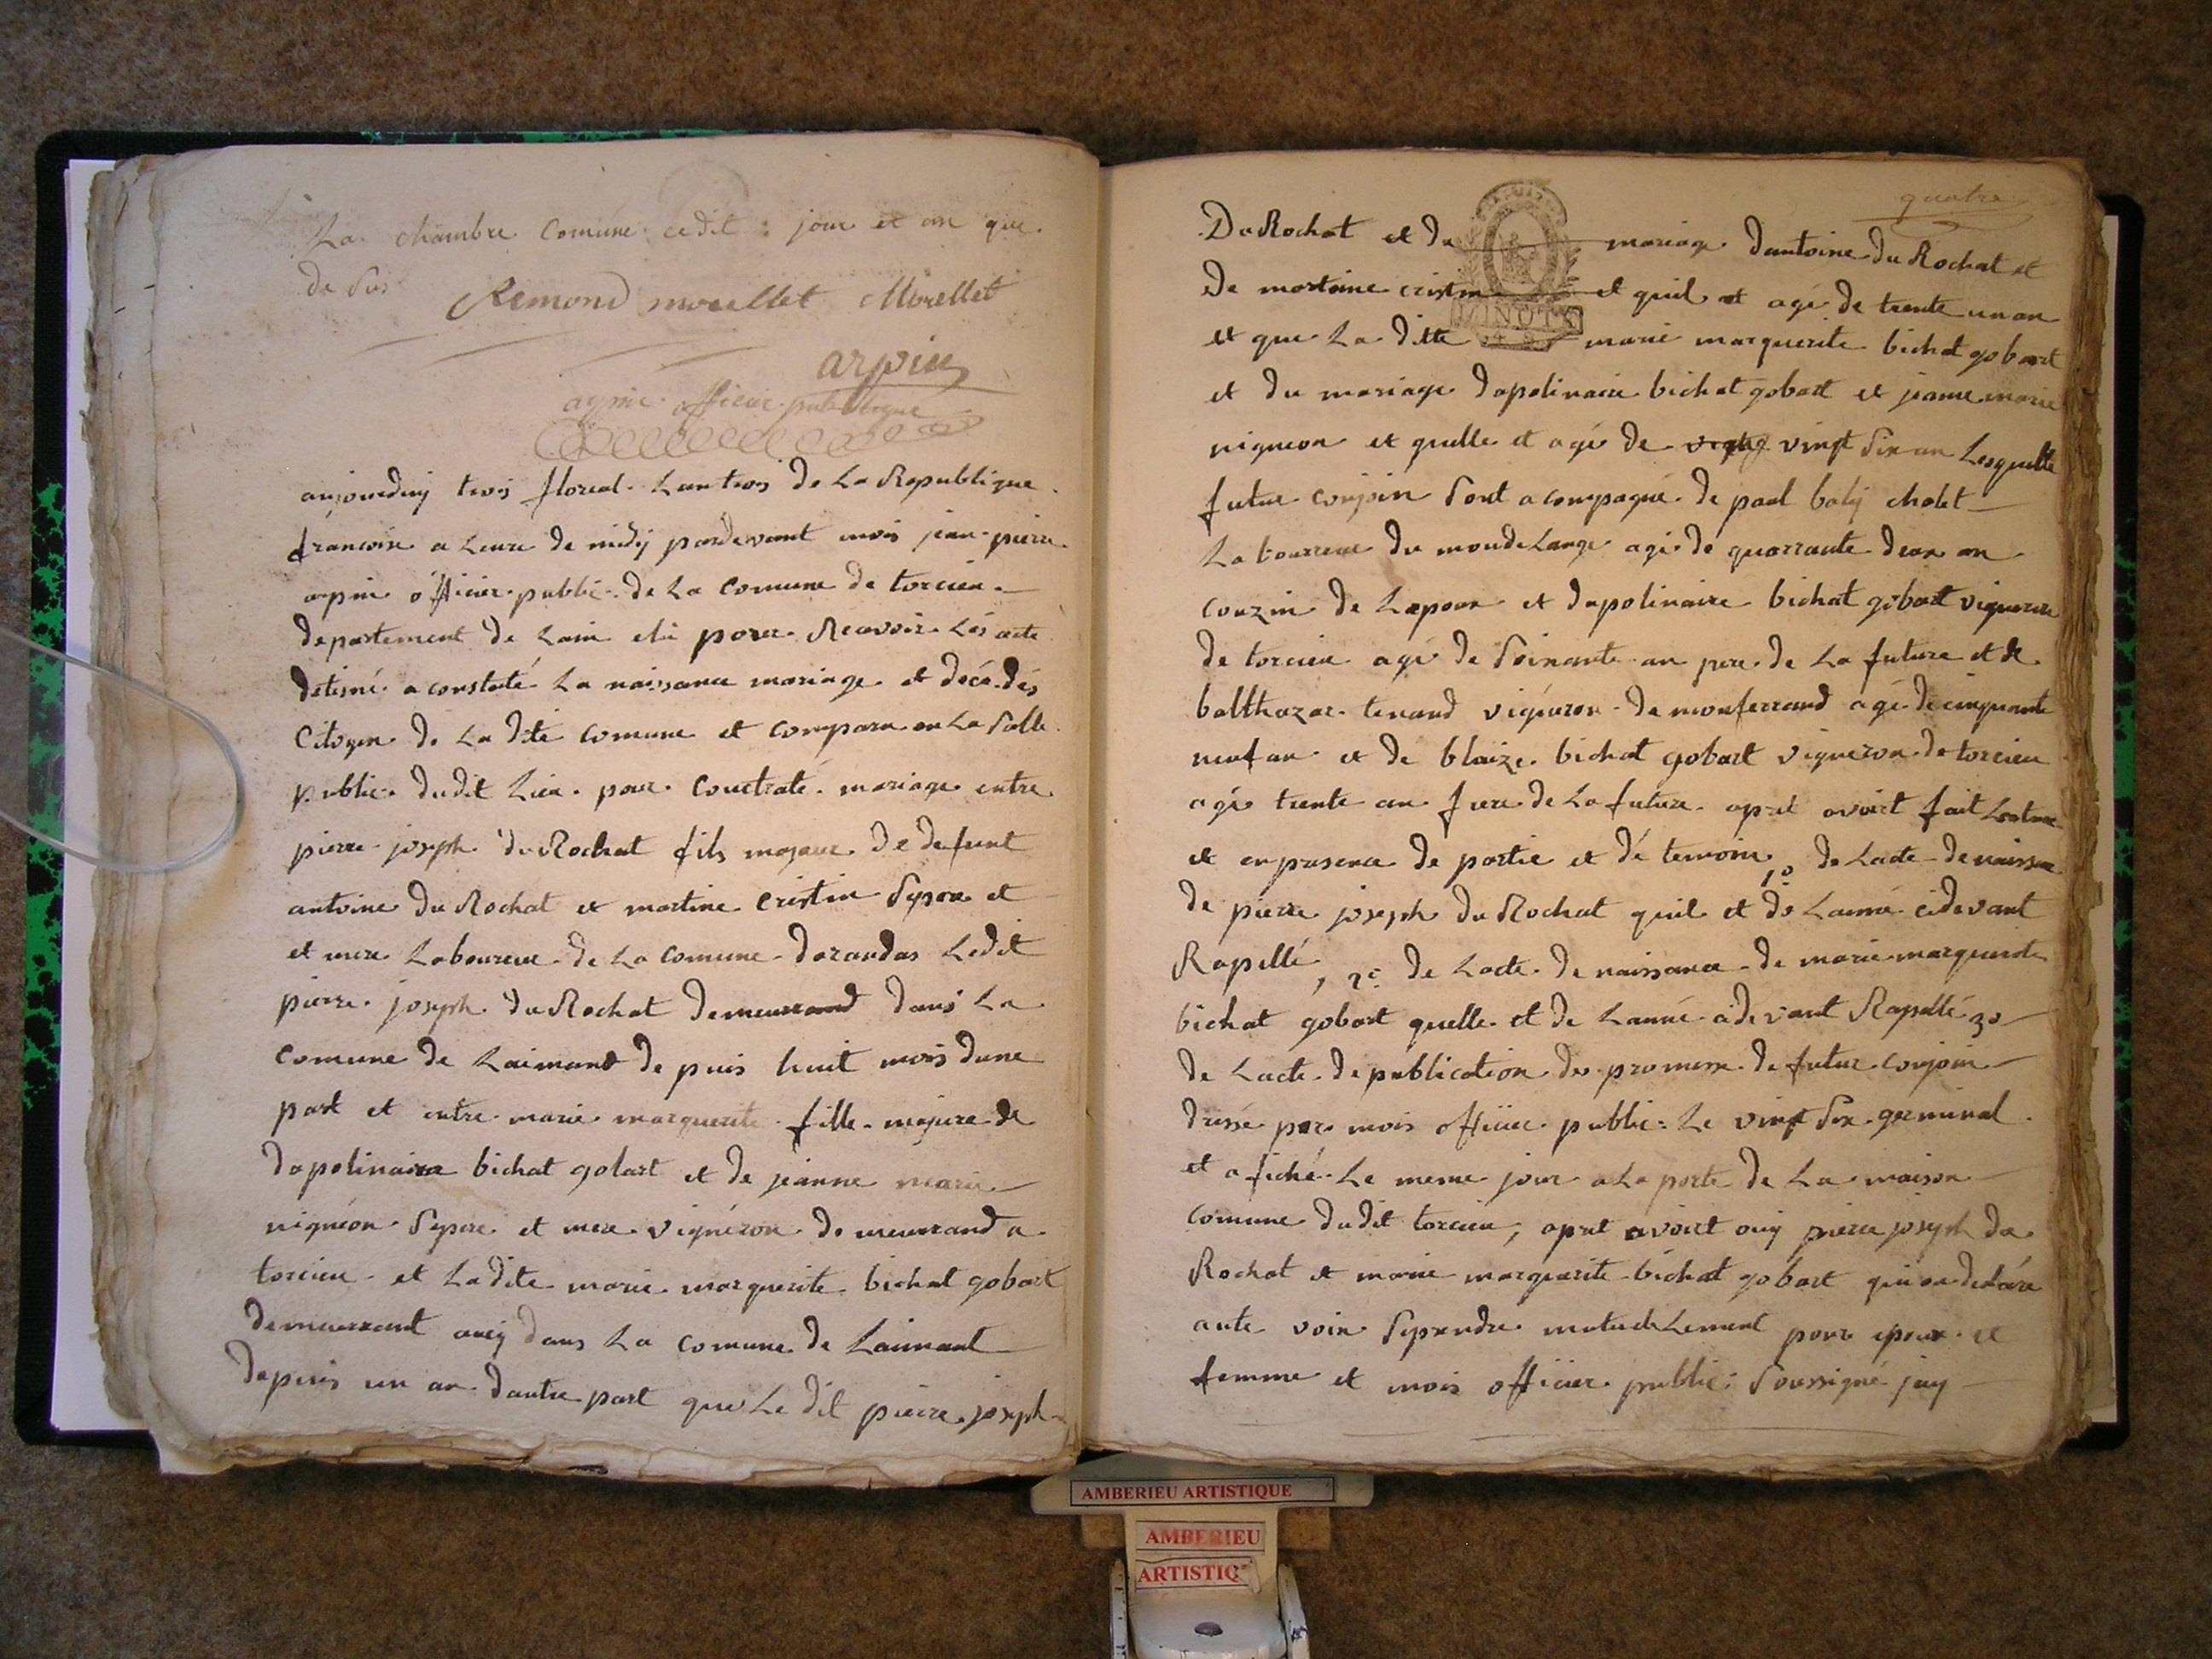 La chambre Comune cedit jour et an que
de sus
Rimond morellet Morellet
arpin
arpin officier publique
aujourduy trois floreal lan trois de La Republique
francoise a Leure de midy pardevant mois jean pierre
arpin officier public de La Comune de torcieu
departement de Lain elu pour Recevoir les acte
detisné a constaté La naissance mariage et décé dés
Citoyen de La dite Comune et comparu en La Salle
public dudit Lieu pour Contraté mariage entre
pierre joseph du Rochat fils majeur de defunt
antoine du Rochat et martine Cristin Sepere et
et mere Laboureur de La Comune darandas Ledit
pierre joseph du Rochat demeurand dans La
Comune de Laimant de puis huit mois dune
part et entre marie marguerite fille majure de
dapolinaire bichat gobart et de jeanne marie
nignéon Sepere et mere vignéron demeurand a
torcieu et Ladite marie marguerite bichat gobart
demeurant aucy dans La Comune de Laimant
depuis un an dautre part que Le dit pierre joseph
quatre
Du Rochat et du mariage dantoine du Rochat et
De martine cristin et quil et agé de trente un an
MINUTE
et que La ditte marie marguerite bichat gobart
et du mariage dapolinaire bichat gobart et jeanne marie
nigneon et quelle et agé de vingt Six an Lesquelle
futur conjoin Sont acompagné de paul baly cholet
Laboureur du moudelange agé de quarrante deux an
couzin de Lepoux et dapolinaire bichat gobart vigneron
de torcieu agé de Soixante an pere de La future et de
balthazar tenand vigneron de monferrand agé de cinquante
neuf an et de blaize bichat gobart vigneron de torcieu
agé trente an frere de La future apret avoirt fait Lecture
et enpresence de partie et dé temoin, 1o de Lacte de naissance
de pierre joseph du Rochat quil et de Lanné cidevant
Rapellé, 2e de Lacte de naissance de marie marguerite
bichat gobart quelle et de Lanné cidevant Rapellé 3o
de Lacte de publication des promesse de futur conjoin
dressé par mois officier public Le vingt Six germinal
et afiché Le meme jour a La porte de La maison
Comune dudit torcieu, apret avoirt ouy pierre joseph du
Rochat et marie marguerite bichat gobart qui on declare
aute voix Seprendre mutuelLement pour epoux et
femme et mois officier public Soussigné jay
AMBERIEU ARTISTIQUE
AMBERIEU
ARTISTIQ